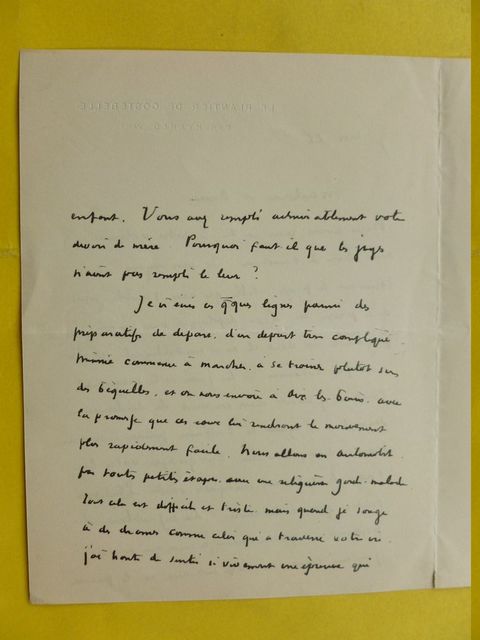 LE PLANTIER DE COSTEBELLE
enfant. Vous avez rempli admirablement votre
devoir de mère. Pourquoi faut il que les juges
n'aient pas rempli le leur ?
Je v écris ces qques lignes parmi des
préparatifs de départ, d'un départ très compliqué.
Minnie commence à marcher, à se traîner plutôt sur
des béquilles, et on nous envoie à Aix les Bains, avec
la promesse que ces eaux lui rendront le mouvement
plus rapidement facile. Nous allons en automobile
par toutes petites étapes, avec une religieuse garde-malade
Tout cela est difficile et triste, mais quand je songe
à des drames comme celui qui a traversé votre vie
j'ai honte de sentir si vivement une épreuve qui